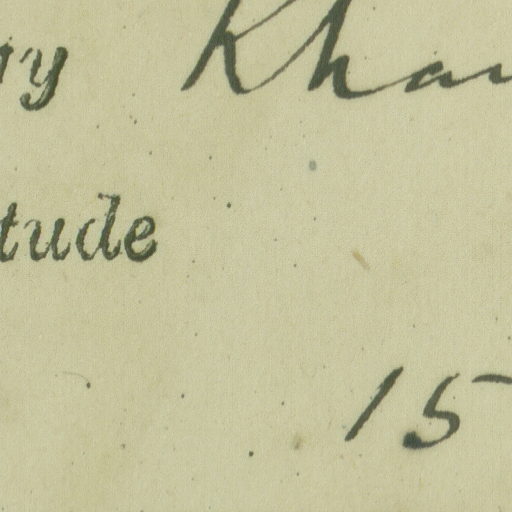 ry Khan
tude
15